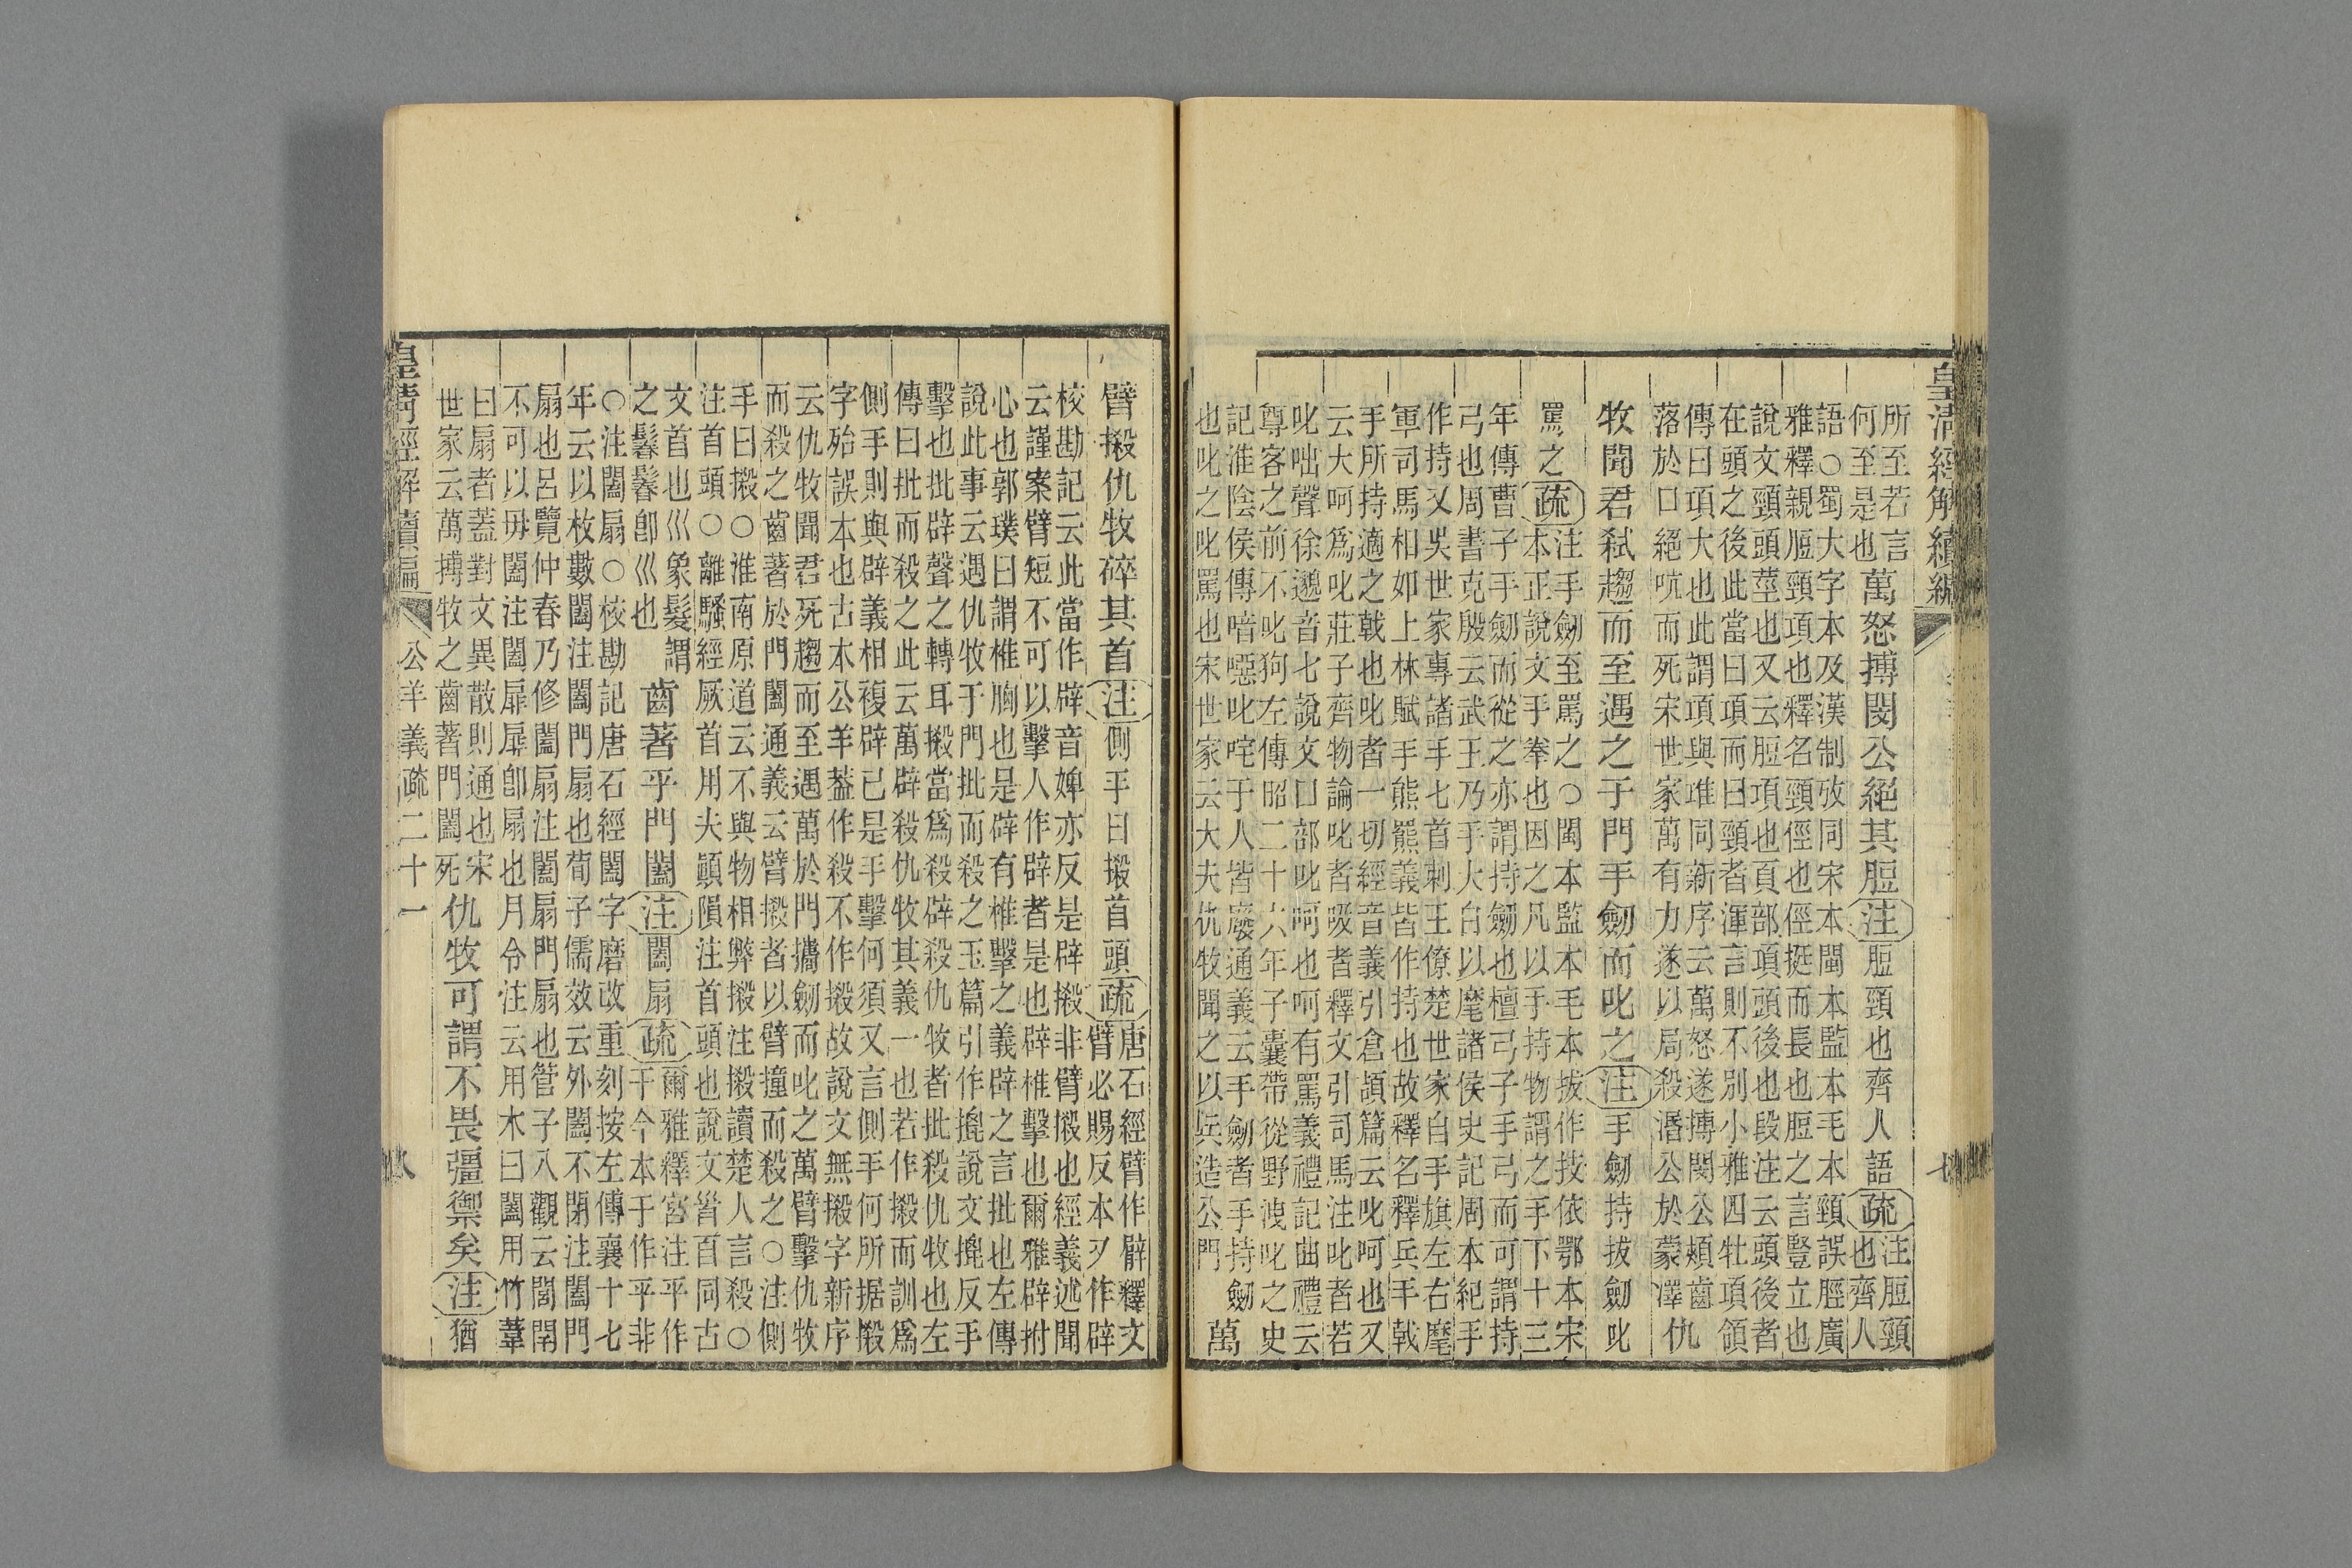 皇清經解續編
所至若言
何至是也
萬怒搏閔公絕其脰
注
脰頸也齊人語
疏
注脰頸
也齊人
語○蜀大字本及漢制攷同宋本閩本監本毛本頸誤脛廣
雅釋親脰頸項也釋名頸俓也俓挺而長也脰之言豎立也
說文頸頭莖也又云脰項也頁部項頭後也段注云頭後者
在頭之後此當曰項而曰頸者渾言則不別小雅四牡項領
傳曰項大也此謂項與堆同新序云萬怒遂搏閔公頰齒
落於口絕吭而死宋世家萬有力遂以局殺湣公於蒙澤
仇
牧聞君弒趨而至遇之于門手劒而叱之
注
手劒持拔劒叱
罵之
疏
注手劒至罵之○閩本監本毛本拔作技依鄂本宋
本正說文手拳也因之凡以手持物謂之手下十三
年傳曹子手劒而從之亦謂持劒也檀弓子手弓而可謂持
弓也周書克殷云武王乃手大白以麾諸侯史記周本紀手
作持又吳世家專諸手匕首刺王僚楚世家自手旗左右麾
軍司馬相如上林賦手熊羆義皆作持也故釋名釋兵手戟
手所持適之戟也叱者一切經音義引倉頡篇云叱呵也又
云大呵爲叱莊子齊物論叱者吸者釋文引司馬注叱者若
叱咄聲徐邈音七說文口部叱呵也呵有罵義禮記曲禮云
尊客之前不叱狗左傳昭二十六年子囊帶從野洩叱之史
記淮陰侯傳喑噁叱咤于人皆廢通義云手劒者手持劒
也叱之叱罵也宋世家云大夫仇牧聞之以兵造公門
萬
臂摋仇牧碎其首
注
側手曰摋首頭
疏
唐石經臂作臂釋文
臂必賜反本又作辟
校勘記云此當作辟音婢亦反是辟摋非臂摋也經義述聞
云謹案臂短不可以擊人作辟者是也辟椎擊也爾雅辟拊
心也郭璞曰謂椎胸也是辟有椎擊之義辟之言批也左傳
說此事云遇仇牧于門批而殺之玉篇引作㧙說文㧙反手
擊也批辟聲之轉耳摋當爲殺辟殺仇牧者批殺仇牧也左
傳曰批而殺之此云萬辟殺仇牧其義一也若作摋而訓爲
側手則與辟義相複辟已是手擊何須又言側手何所據摋
字殆誤本也古本公羊蓋作殺不作摋故說文無摋字新序
云仇牧聞君死趨而至遇萬於門攜劒而叱之萬臂擊仇牧
而殺之齒著於門闔通義云臂摋者以臂撞而殺之○注側
手曰摋○淮南原道云不與物相弊摋注摋讀楚人言殺○
注首頭○離騷經厥首用夫顚隕注首頭也說文𦣻百同古
文首也巛象髮謂
之鬊鬊卽巛也
齒著乎門闔
注
闔扇
疏
爾雅釋宮注平作
干今本于作平非
○注闔扇○校勘記唐石經闔字磨改重刻按左傳襄十七
年云以枚數闔注闔門扇也荀子儒效云外闔不閉注闔門
扇也呂覽仲春乃修闔扇注闔扇門扇也管子八觀云閭閈
不可以毋闔注闔扉扉卽扇也月令注云用木曰闔用竹葦
曰扇者蓋對文異散則通也宋
世家云萬搏牧之齒著門闔死
仇牧可謂不畏彊禦矣
注
猶
公羊義疏二十一
八